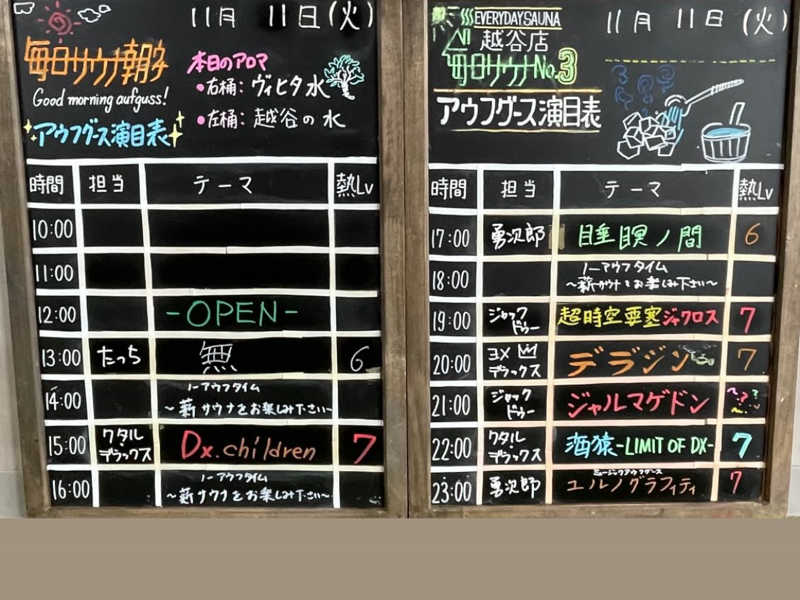 11月 11日(火)
毎日サウナ朝
Good morning aufguss!
アウフグース演目表
本日のアロマ
•右桶: ヴィヒタ水
•左桶: 越谷の水
時間 担当 テーマ 熱Lv
10:00
11:00
12:00 -OPEN-
13:00 たっち 無 6
14:00 ノーアウフタイム
～薪サウナをお楽しみ下さい～
15:00 クタル・デラックス Dx.children 7
16:00 ノーアウフタイム
～薪サウナをお楽しみ下さい～
EVERYDAYSAUNA
越谷店
毎日サウナNo.3
アウフグース演目表
11月 11日(火)
時間 担当 テーマ 熱Lv
17:00 勇次郎 睡瞑ノ間 6
18:00 ノーアウフタイム
～薪サウナをお楽しみ下さい～
19:00 ジャックドゥー 超時空要塞ジャクロス 7
20:00 ヨメデラックス デラジン 7
21:00 ジャックドゥー ジャルマゲドン ???
22:00 クタル・デラックス 酒猿-LIMIT OF DX- 7
23:00 勇次郎 ミュージックアウフグース
ユルノグラフィティ 7